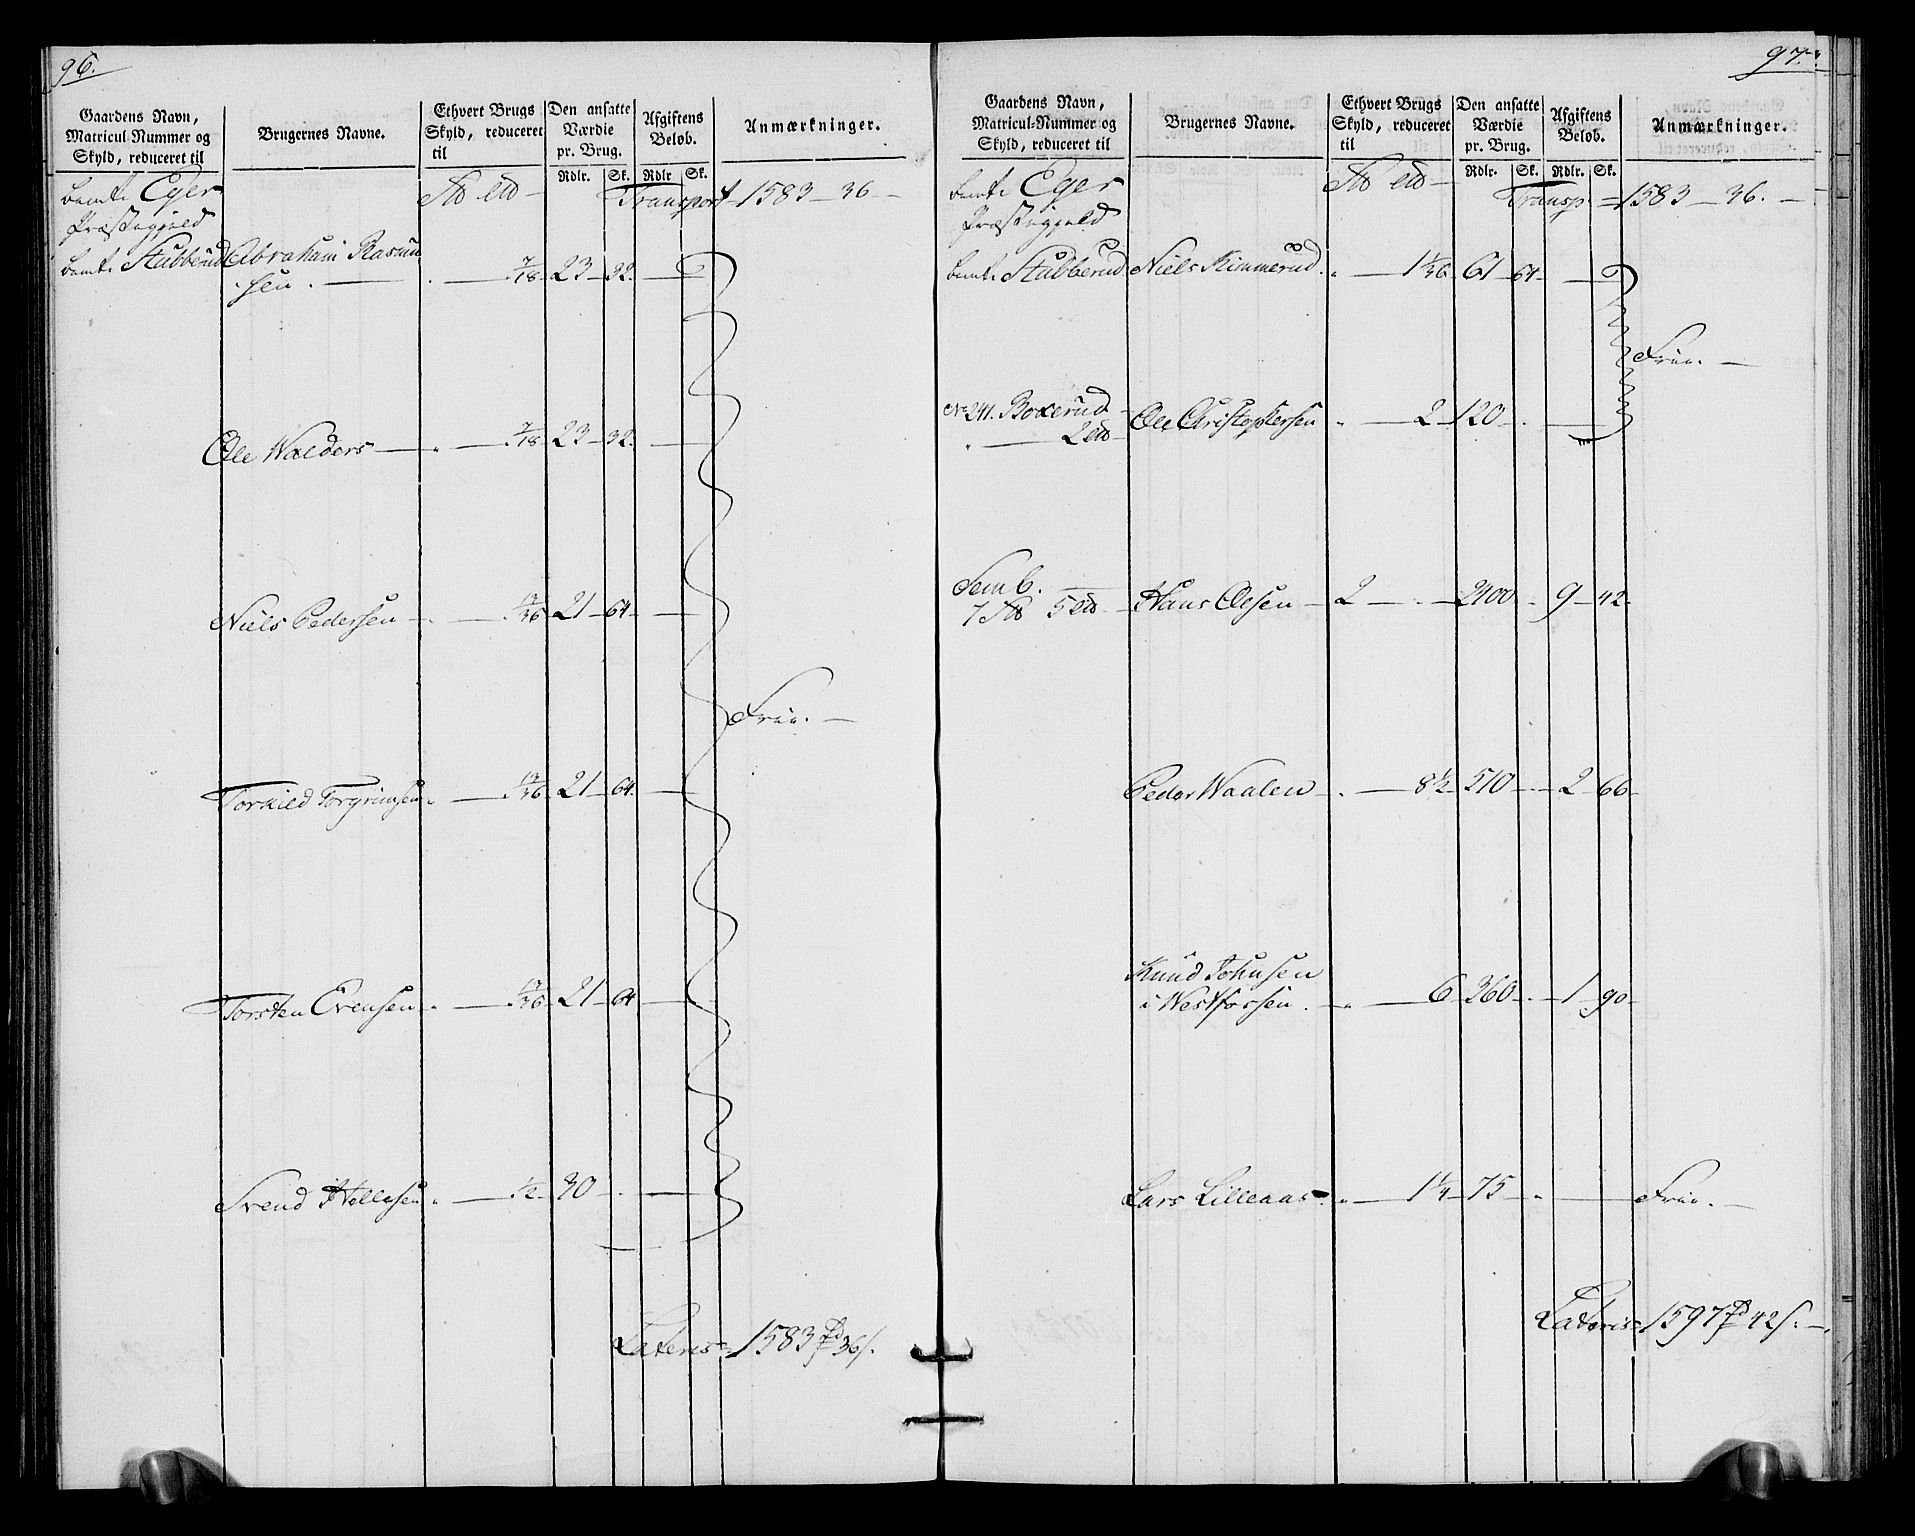 96.
Gaardens Navn,
Matricul-Nummer og
Skyld, reduceret til
Brugernes Navne.
Ethvert Brugs
Skyld, reduceret
til
Den ansatte
Værdie
pr. Brug.
Rdlr. Sk.
Afgiftens
Beløb.
Rdlr Sk.
Anmærkninger.
bemte Eger
Præstegjeld
Transport 1583 36
bemte Stubberud Abraham Rasmu
sen 7/18 23 32
Ole Walders 7/18 23 32
Niels Pedersen 13/36 21 64
Friee.
Torkild Torgrimsen 13/36 21 64
Torsten Evensen 13/36 21 64
Svend Hellesen 1/2 30
Lateris 1583 Rd 36 s.
97.
Gaardens Navn,
Matricul-Nummer og
Skyld, reduceret til
Brugernes Navne.
Ethvert Brugs
Skyld, reduceret
til
Den ansatte
Værdie
pr. Brug.
Rdlr. Sk.
Afgiftens
Beløb.
Rdlr. Sk.
Anmærkninger.
bemte Eger
Præstegjeld
Transp. 1583 36.
bemte Stubberud Niels Kimmerud 1 1/36 61 64
Friee.
No 241. Boxerud Ole Christophersen 2 120
Semb.
Hans Olsen 2 2400 9 42
Peder Waalen 8 1/2 510 2 66
Knud Johnsen
i Westfossen 6 360 1 90
Lars Lilleaas 1 1/4 75 Friee.
Lateris 1597 Rd 42 s.